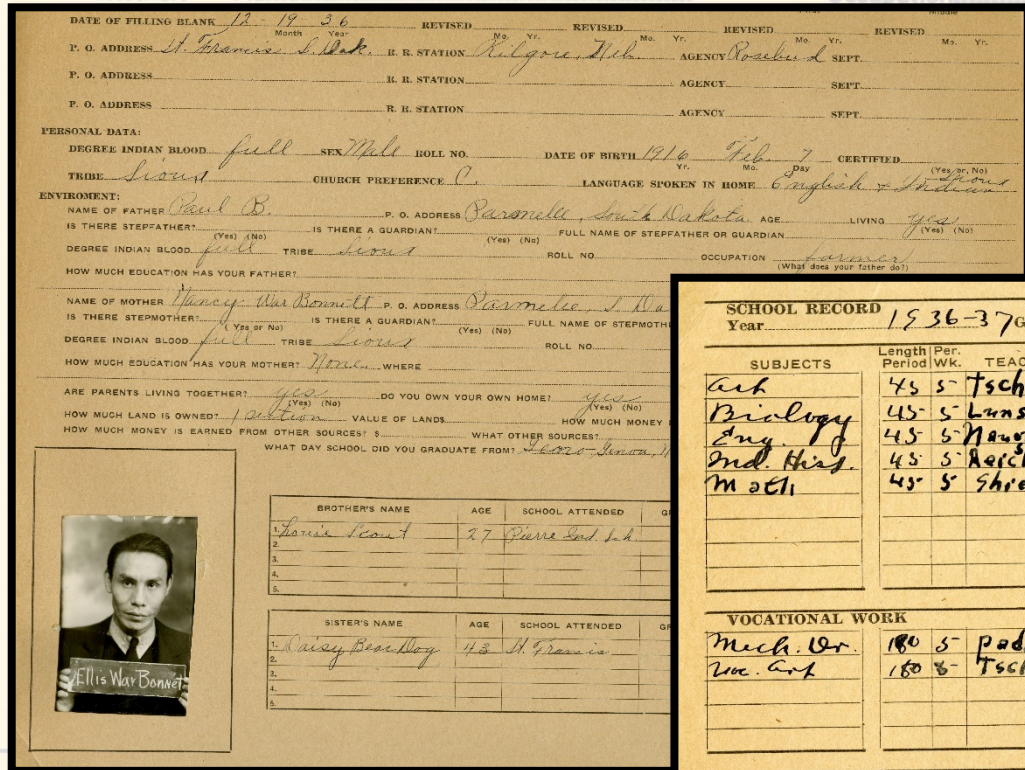 DATE OF FILLING BLANK 12-19 36 REVISED REVISED REVISED REVISED
Month Year Mo. Yr. Mo. Yr. Mo. Yr. Mo. Yr.
P. O. ADDRESS St. Francis S. Dak. R. R. STATION Kilgore, Neb. AGENCY Rosebud SEPT.
P. O. ADDRESS R. R. STATION AGENCY SEPT.
P. O. ADDRESS R. R. STATION AGENCY SEPT.
PERSONAL DATA:
DEGREE INDIAN BLOOD full SEX Male ROLL NO. DATE OF BIRTH 1916 Feb. 7 CERTIFIED
Yr. Mo. Day (Yes or, No)
TRIBE Sioux CHURCH PREFERENCE C. LANGUAGE SPOKEN IN HOME English & Indian
Sioux
ENVIROMENT:
NAME OF FATHER Paul B. P. O. ADDRESS Parmelle, South Dakota. AGE LIVING yes
IS THERE STEPFATHER? IS THERE A GUARDIAN? FULL NAME OF STEPFATHER OR GUARDIAN
(Yes) (No) (Yes) (No) (Yes) (No)
DEGREE INDIAN BLOOD full TRIBE Sioux ROLL NO. OCCUPATION farmer
(What does your father do?)
HOW MUCH EDUCATION HAS YOUR FATHER?
NAME OF MOTHER Nancy War Bonnett P. O. ADDRESS Parmelee, S. Da
IS THERE STEPMOTHER? IS THERE A GUARDIAN? FULL NAME OF STEPMOTH
(Yes or No) (Yes) (No)
DEGREE INDIAN BLOOD full TRIBE Sioux ROLL NO.
HOW MUCH EDUCATION HAS YOUR MOTHER? None. WHERE
ARE PARENTS LIVING TOGETHER? yes DO YOU OWN YOUR OWN HOME? yes
(Yes) (No) (Yes) (No)
HOW MUCH LAND IS OWNED? 1 section VALUE OF LANDS HOW MUCH MONEY
HOW MUCH MONEY IS EARNED FROM OTHER SOURCES? $ WHAT OTHER SOURCES?
WHAT DAY SCHOOL DID YOU GRADUATE FROM? Genoa,
BROTHER'S NAME AGE SCHOOL ATTENDED
1. Louis Scout 27 Pierre Ind. Sch.
2.
3.
4.
5.
SISTER'S NAME AGE SCHOOL ATTENDED
1. Daisy Bear Dog 43 St. Francis
2.
3.
4.
5.
Ellis War Bonnet
SCHOOL RECORD
Year 1936-37 G
SUBJECTS Length Period Per. Wk. TEAC
Art 45 5 Tsch
Biology 45 5 Luns
Eng. 45 5
Ind. Hist. 45 5 Reic
Math 45 5 Shie
VOCATIONAL WORK
Mech. Dr. 180 5 pad
Voc. Art 180 5 Tsch